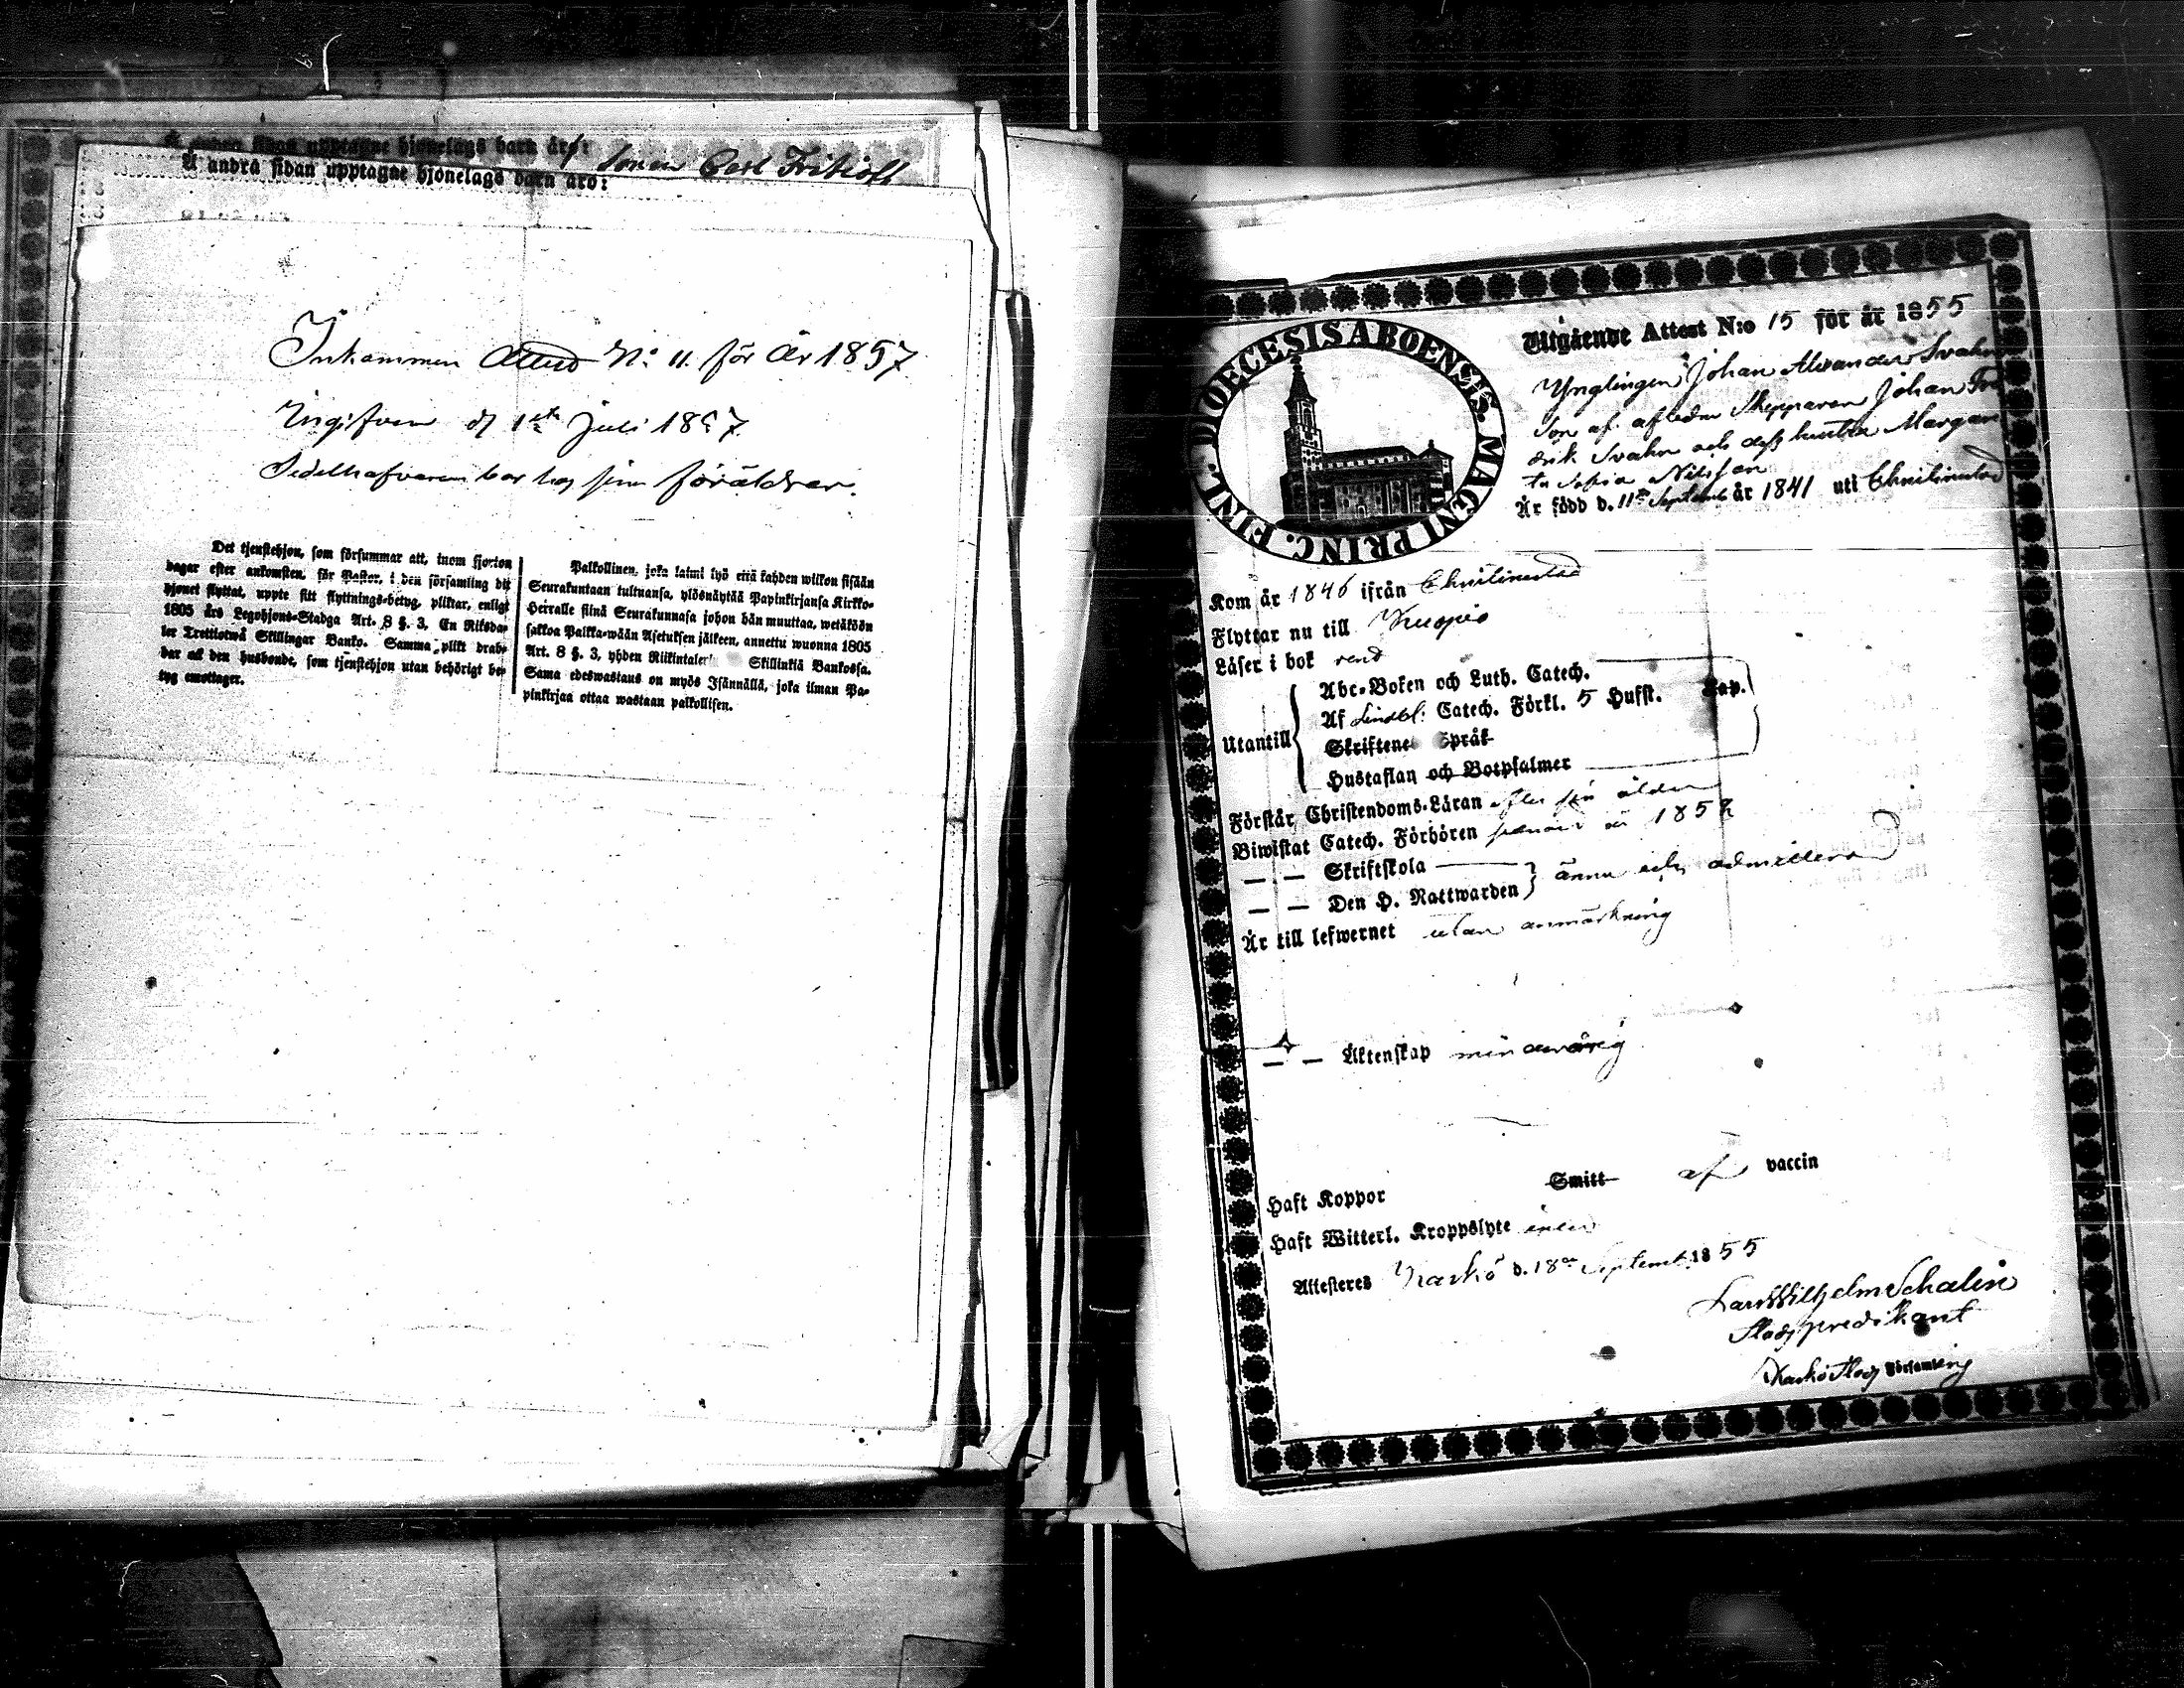 Å andra sidan upptagne hjonelags barn äro:
Å andra sidan upptagne hjonelags barn äro: sonen Carl Fritioff
Inkommen Attest No 11 för År 1857
Ingifven d 1sta Juli 1857
Sedelhafvaren bor hos sina föräldrar.
Det tjenstehjon, som försummar att, inom fjorton
dagar efter ankomsten, för Pastor, i den församling dit
hjonet flyttat, uppte sitt flyttnings-betyg, pliktar, enligt
1805 års Legohjons-Stadga Art. 8 §. 3, En Riksda-
ler Trettiotwå Skillingar Banko. Samma plikt drab-
bar ock den husbonde, som tjenstehjon utan behörigt be-
tyg emottager.
Palkollinen, joka laimi lyö että kahden wiikon sisään
Seurakuntaan tultuansa, ylösnäytää Papinkirjansa Kirkko-
Herralle siinä Seurakunnasa johon hän muuttaa, wetäköön
sakkoa Palkka-wään Asetuksen jälkeen, annettu wuonna 1805
Art. 8 §. 3, yhden Riikintalerin Skillinkiä Bankossa.
Sama edeswastaus on myös Isännällä, joka ilman Pa-
pinkirjaa ottaa wastaan palkollisen.
DIOECESIS ABOENSIS. MAGNI PRINC. FINL.
Utgående Attest N:o 15 för år 1855
Ynglingen Johan Alexander Svahn
Son af afledne Skepparen Johan Fre
drik Svahn och dess hustru Margare
ta Sofia Nilsson
Är född d. 11te Septemb år 1841 uti Christinestad
Kom år 1846 ifrån Christinestad
Flyttar nu till Kuopio
Läser i bok rent
Utantill
Abc-Boken och Luth. Catech.
Af Lindbl: Catech. Förkl. 5 Hufst. Kap.
Skriftenes Språk
Hustaflan och Botpsalmer
Förstår Christendoms-Läran efter sin ålder
Biwistat Catech. Förhören senast år 185
— — Skriftskola
— — Den H. Nattwarden } ännu icke admitterad
Är till lefwernet utan anmärkning
— — Äktenskap minderårig
Haft Koppor Smitt af vaccin
Haft Witterl. Kroppslyte intet
Attesteras Kaskö d. 18de Septemb. 1855
Lars Wilhelm Schalin
Stadspredikant
Kaskö Stads Församling